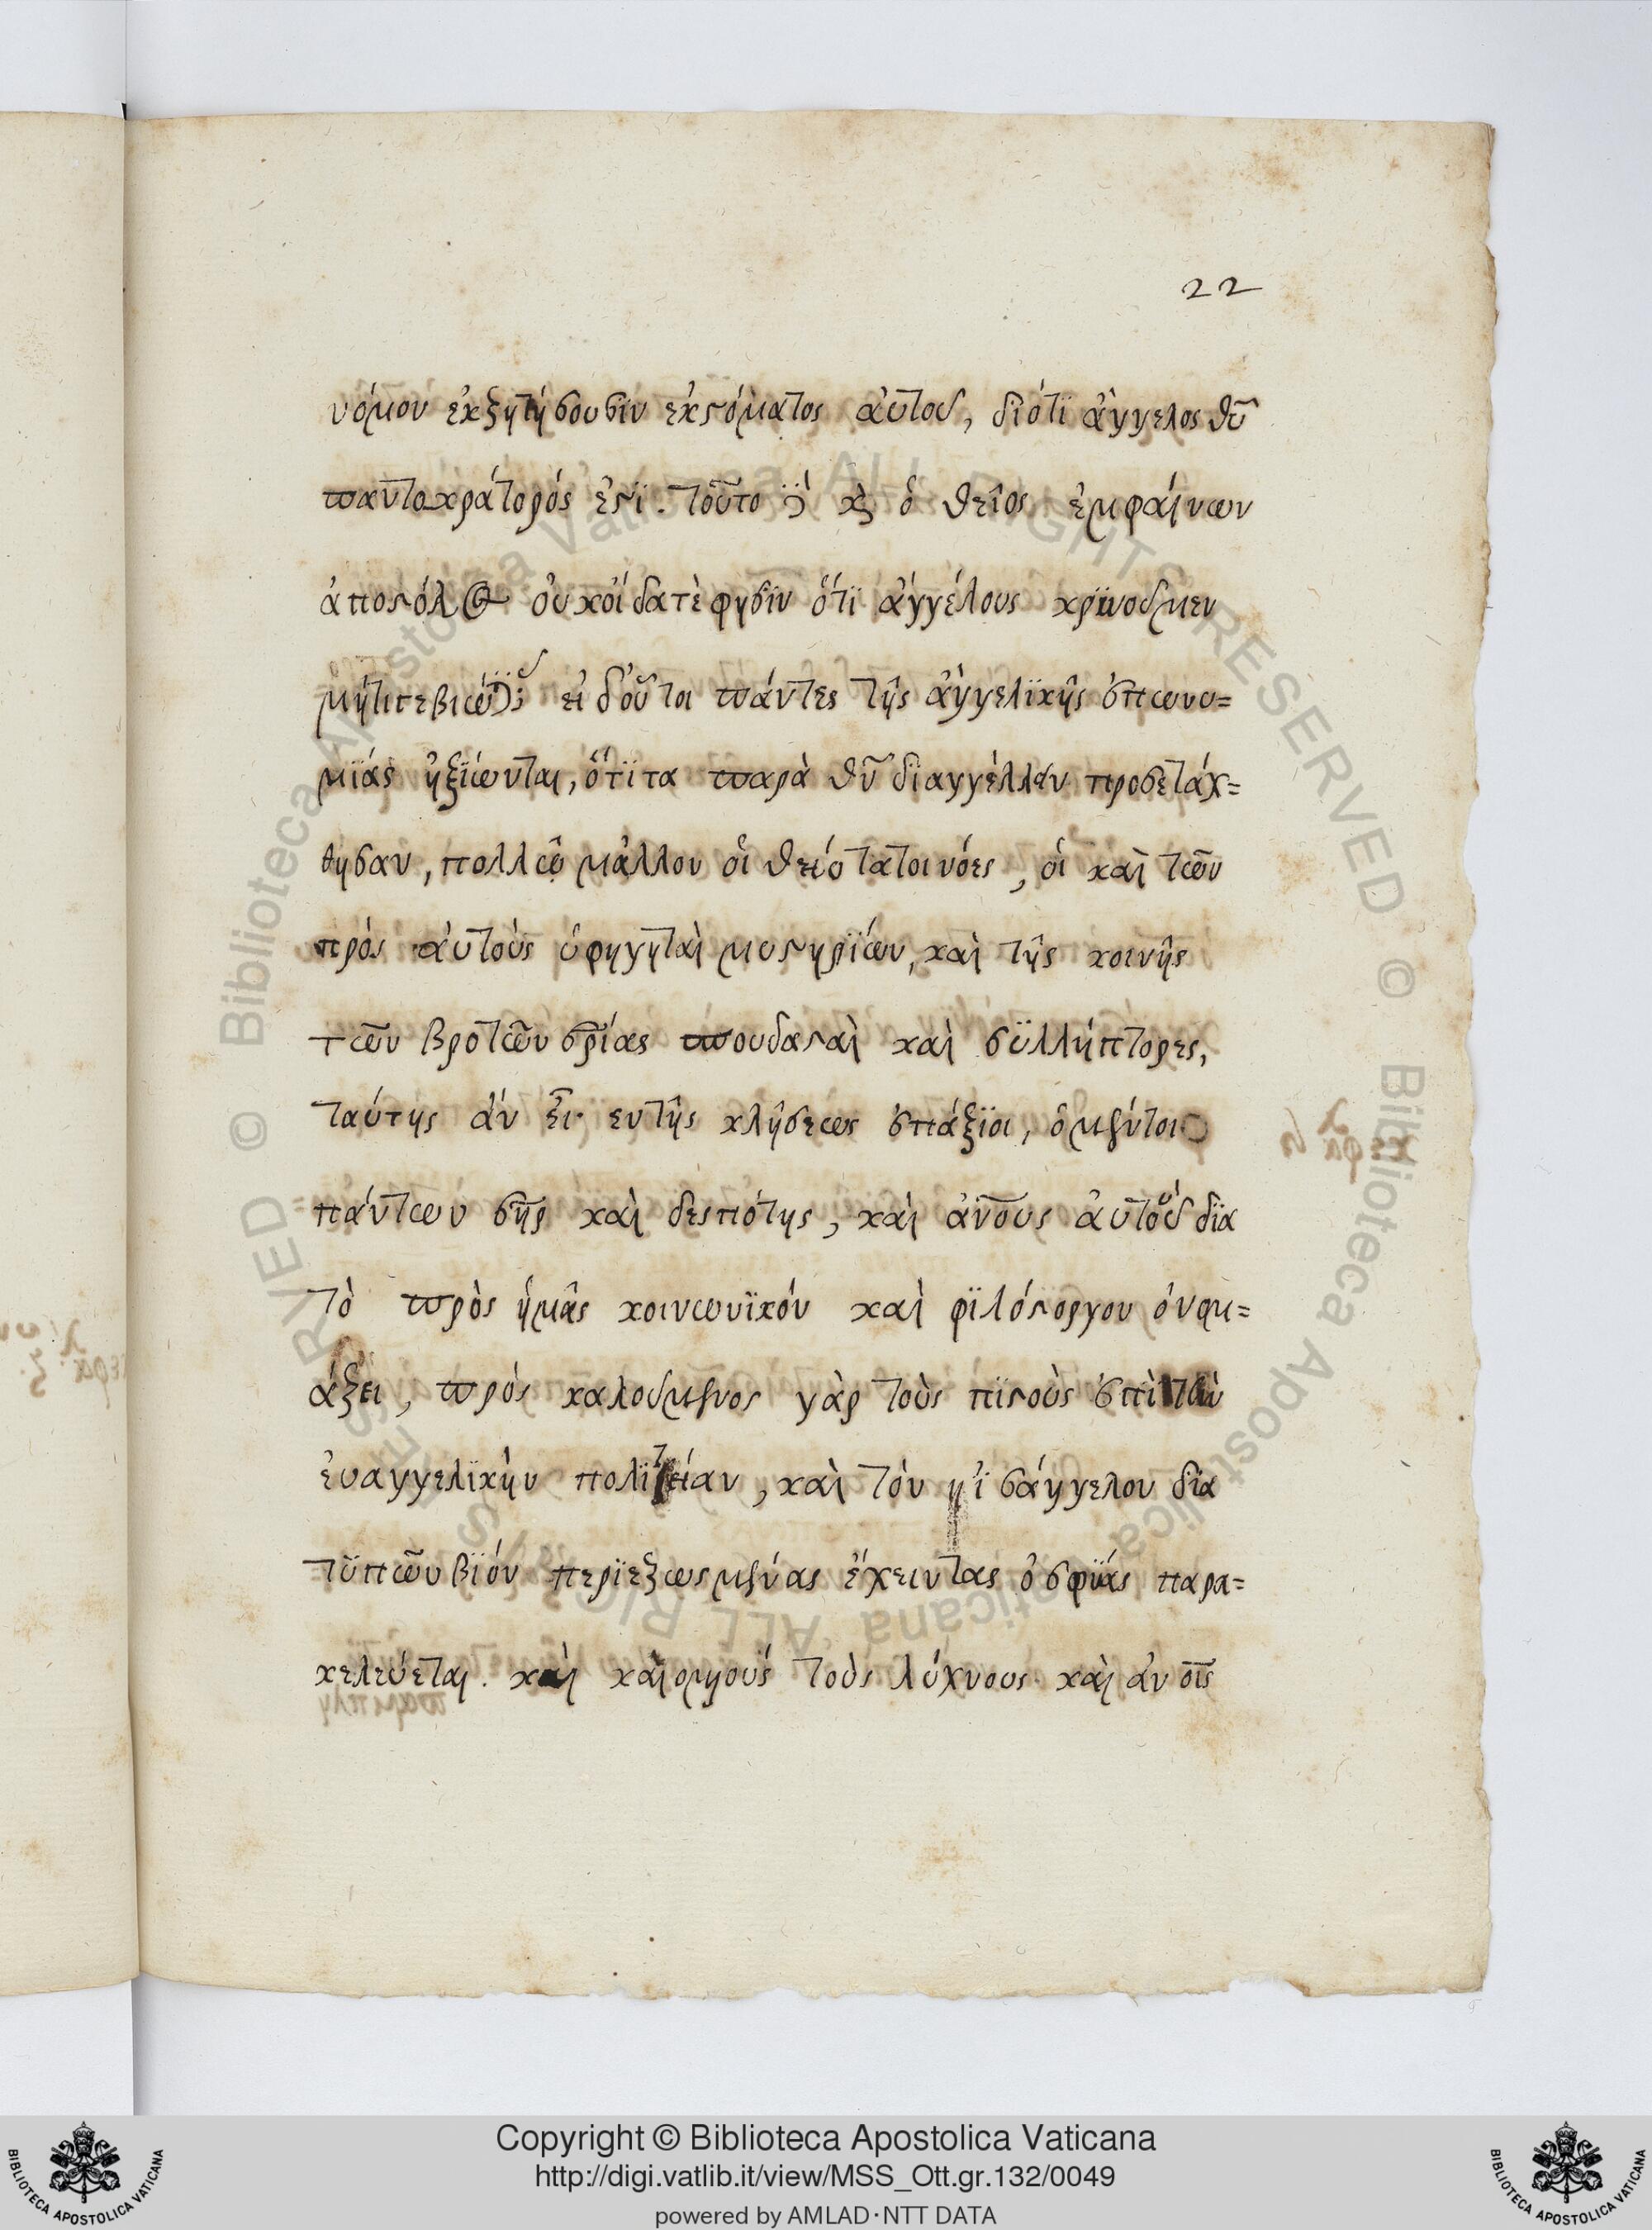 22
νόμον ἐκζητήσουσϊν ἐκστόματος ἀυτοῦ, δϊότϊ ἄγγελος θῦ
παντοκράτορός ἐστϊ. τοῦτο δὲ κὶ ὁ θεῖος ἐμφαίνων
ἀποστόλος ὀυκοίδατὲ φησϊν ὅτϊ ἀγγέλους κρϊνοῦμεν
μήτιγεβιωτ; εἰ δ'οὗτοι πάντες τῆς ἀγγελϊκῆς ἐπωνυ=
μϊάς ἠξϊώνται, ὅτϊ τα παρὰ θῦ δϊαγγέλλειν προσετάχ=
θησαν, πολλῶ μᾶλλον οἱ θειότατοι νόες, οἱ καὶ τῶν
πρός ἀυτοὺς ὑφηγηταὶ μυστηρϊων, καὶ τῆς κοινῆς
τῶν βροτῶν σρίας σπουδασταὶ καὶ συλλήπτορες,
ταύτης ἀν εἶ εντῆς κλήσεως ἐπάξϊοι, ὁμέντοι
πάντων σηρ καὶ δεσπότης, καὶ ἀνους ἀυτοῦ δϊα
τὸ πρὸς ἡμᾶς κοινωνϊκόν καὶ φϊλόστοργον ὀνομ=
άζει, πρός καλούμενος γὰρ τοὺς πϊστοὺς ἐπὶ τὴν
ἐυαγγελϊκὴν πολϊτείαν, καὶ τὸν ἠϊσάγγελον δϊα
τῦπῶν βϊόν περϊεζωσμένας ἔχειντας ὀσφϋάς παρα=
κελεύεται. καὶ καὶομμούς τοὺς λύχνους καὶ ἀνοις
Copyright © Biblioteca Apostolica Vaticana
http://digi.vatlib.it/view/MSS_Ott.gr.132/0049
powered by AMLAD·NTT DATA
BIBLIOTECA APOSTOLICA VATICANA
BIBLIOTECA APOSTOLICA VATICANA